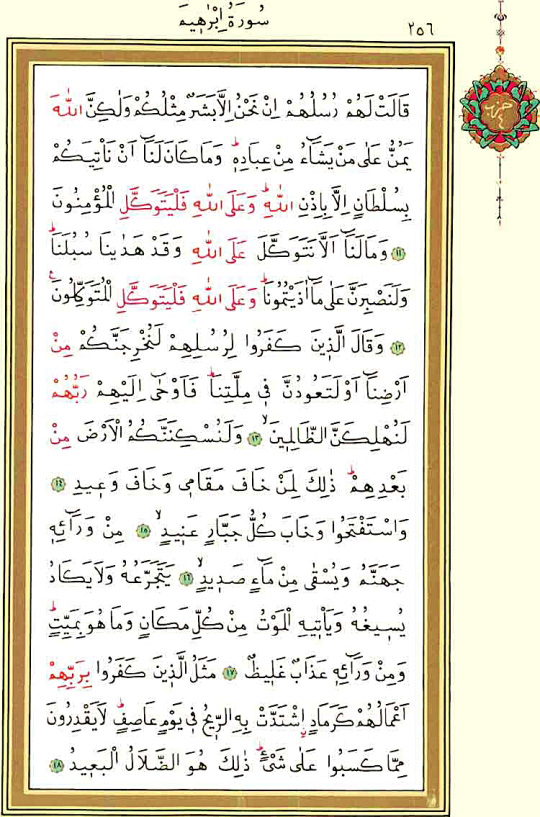 سُورَةُ اِبْرٰه۪يمَ
٢٥٦
قَالَتْ لَهُمْ رُسُلُهُمْ اِنْ نَحْنُ اِلَّا بَشَرٌ مِثْلُكُمْ وَلٰكِنَّ اللّٰهَ
يَمُنُّ عَلٰى مَنْ يَشَٓاءُ مِنْ عِبَادِه۪ۜ وَمَا كَانَ لَنَٓا اَنْ نَأْتِيَكُمْ
بِسُلْطَانٍ اِلَّا بِاِذْنِ اللّٰهِۜ وَعَلَى اللّٰهِ فَلْيَتَوَكَّلِ الْمُؤْمِنُونَ
﴿١١﴾ وَمَا لَنَٓا اَلَّا نَتَوَكَّلَ عَلَى اللّٰهِ وَقَدْ هَدٰينَا سُبُلَنَاۜ
وَلَنَصْبِرَنَّ عَلٰى مَٓا اٰذَيْتُمُونَاۜ وَعَلَى اللّٰهِ فَلْيَتَوَكَّلِ الْمُتَوَكِّلُونَ۟
﴿١٢﴾ وَقَالَ الَّذ۪ينَ كَفَرُوا لِرُسُلِهِمْ لَنُخْرِجَنَّكُمْ مِنْ
اَرْضِنَٓا اَوْ لَتَعُودُنَّ ف۪ي مِلَّتِنَاۜ فَاَوْحٰٓى اِلَيْهِمْ رَبُّهُمْ
لَنُهْلِكَنَّ الظَّالِم۪ينَۙ ﴿١٣﴾ وَلَنُسْكِنَنَّكُمُ الْاَرْضَ مِنْ
بَعْدِهِمْۜ ذٰلِكَ لِمَنْ خَافَ مَقَام۪ي وَخَافَ وَع۪يدِ ﴿١٤﴾
وَاسْتَفْتَحُوا وَخَابَ كُلُّ جَبَّارٍ عَن۪يدٍۙ ﴿١٥﴾ مِنْ وَرَٓائِه۪
جَهَنَّمُ وَيُسْقٰى مِنْ مَٓاءٍ صَد۪يدٍۙ ﴿١٦﴾ يَتَجَرَّعُهُ وَلَا يَكَادُ
يُس۪يغُهُ وَيَأْت۪يهِ الْمَوْتُ مِنْ كُلِّ مَكَانٍ وَمَا هُوَ بِمَيِّتٍۜ
وَمِنْ وَرَٓائِه۪ عَذَابٌ غَل۪يظٌ ﴿١٧﴾ مَثَلُ الَّذ۪ينَ كَفَرُوا بِرَبِّهِمْ
اَعْمَالُهُمْ كَرَمَادٍۨ اشْتَدَّتْ بِهِ الرّ۪يحُ ف۪ي يَوْمٍ عَاصِفٍۜ لَا يَقْدِرُونَ
مِمَّا كَسَبُوا عَلٰى شَيْءٍۜ ذٰلِكَ هُوَ الضَّلَالُ الْبَع۪يدُ ﴿١٨﴾